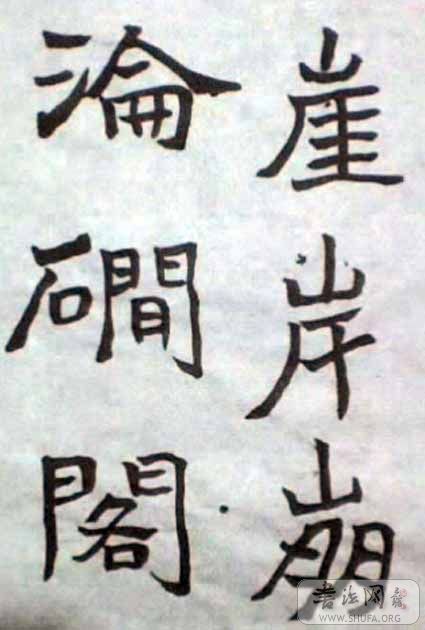 崖岸崩
淪磵閣
书法网
WWW.SHUFA.ORG